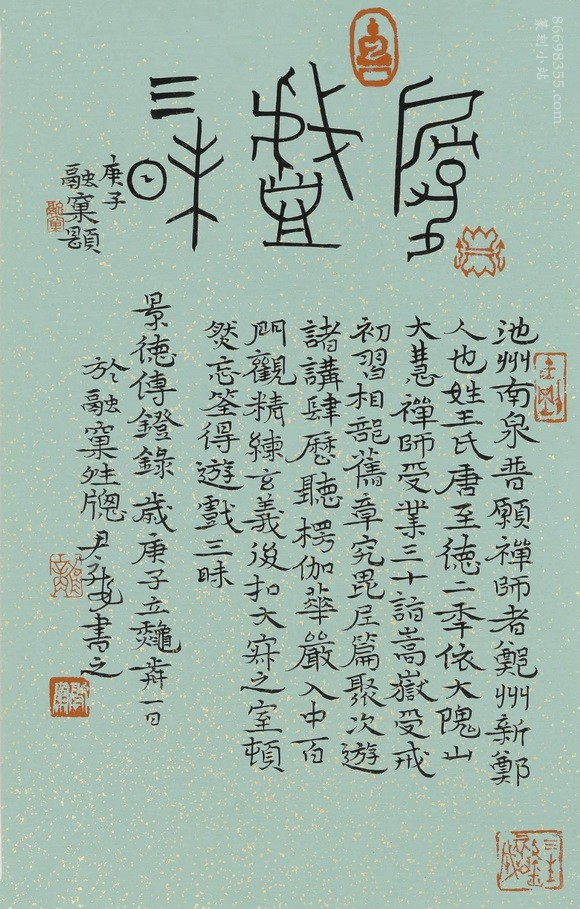 遊戲三昧
庚子
融窠題
池州南泉普願禪師者鄭州新鄭
人也姓王氏唐至德二季依大隗山
大慧禪師受業三十詣嵩嶽受戒
初習相部舊章究毘尼篇聚次遊
諸講肆歷聽楞伽華嚴入中百
門觀精練玄義後扣大寂之室頓
然忘筌得遊戲三昧
景德傳鐙錄 歲庚子立龝歬一日
於融窠牕尹書之
86698355.com
篆刻小站